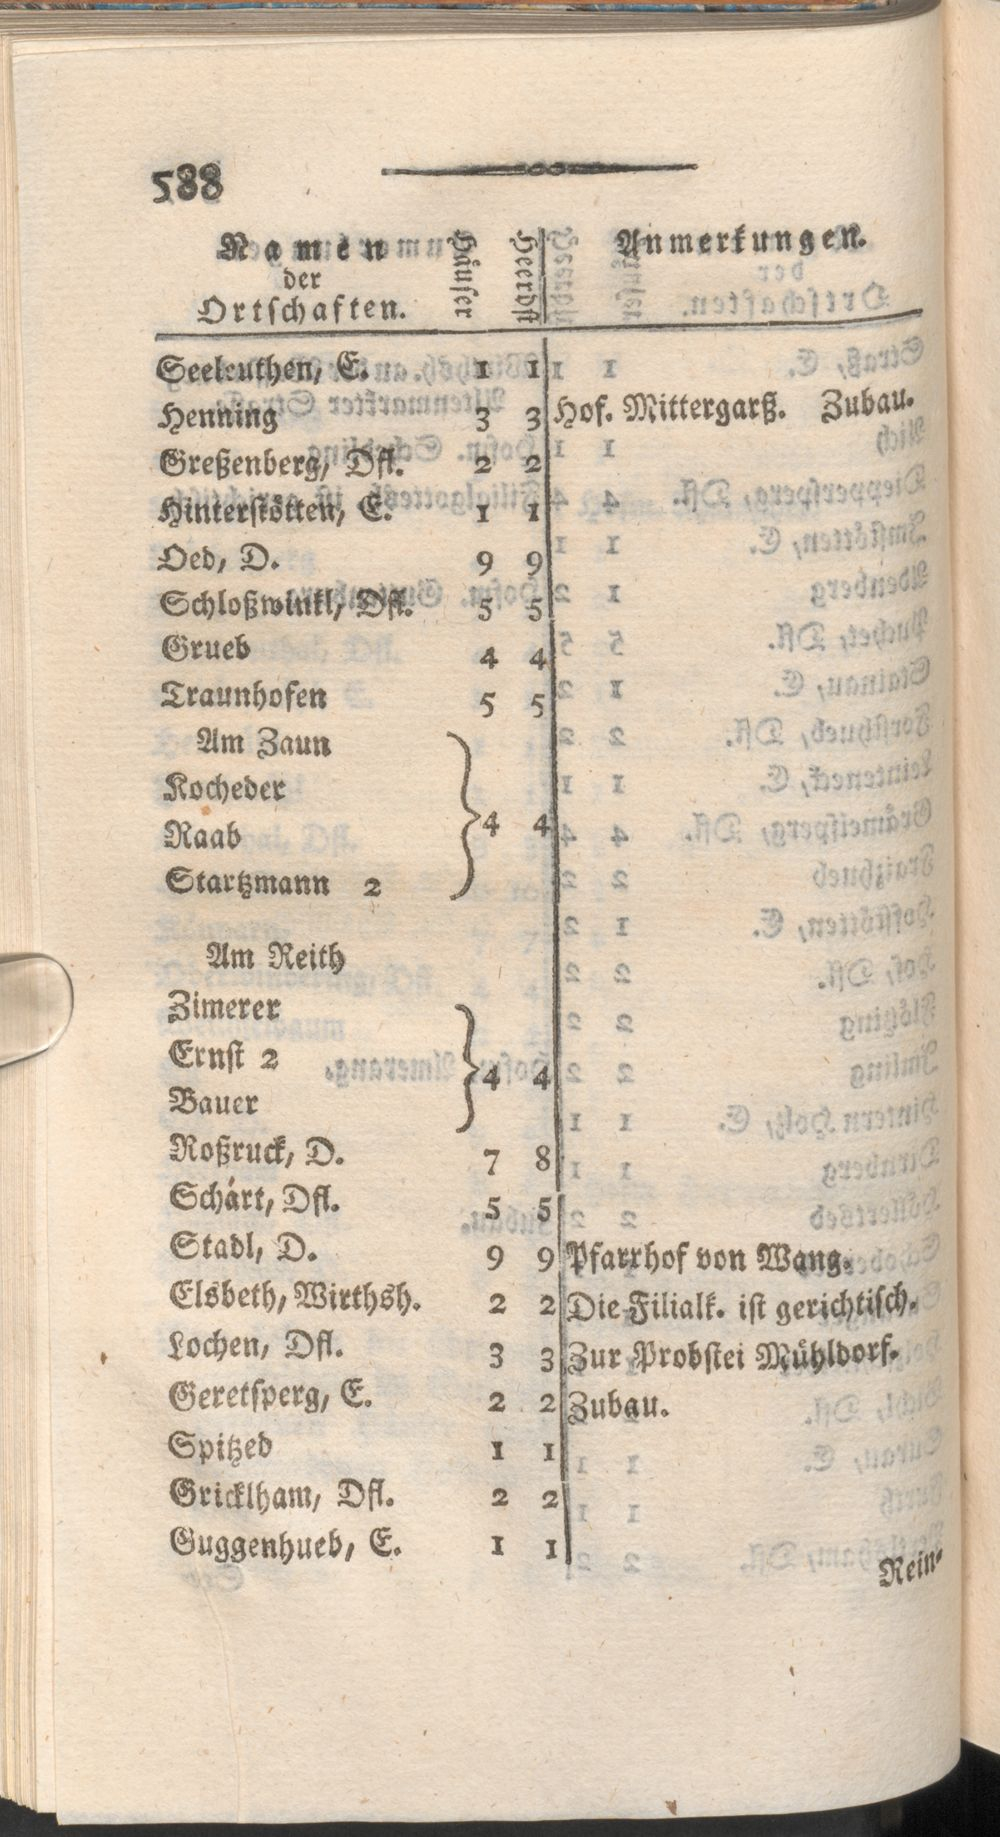 588
Namen der Ortschaften. Häuser Heerdst Anmerkungen.
Seeleuthen, E. 1 1
Henning 3 3 Hof. Mittergarß. Zubau.
Greßenberg, Dfl. 2 2
Hinterstötten, E. 1 1
Oed, D. 9 9
Schloßwinkl, Dfl. 5 5
Grueb 4 4
Traunhofen 5 5
Am Zaun
Kocheder
Raab 4 4
Startzmann 2
Am Reith
Zimerer
Ernst 2 4 4
Bauer
Roßruck, D. 7 8
Schärt, Dfl. 5 5
Stadl, D. 9 9 Pfarrhof von Wang.
Elsbeth, Wirthsh. 2 2 Die Filialk. ist gerichtisch.
Lochen, Dfl. 3 3 Zur Probstei Mühldorf.
Geretsperg, E. 2 2 Zubau.
Spitzed 1 1
Gricklham, Dfl. 2 2
Guggenhueb, E. 1 1
Rein-